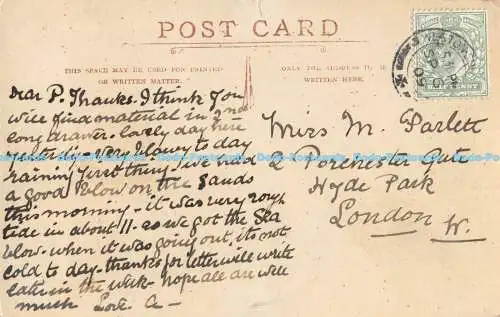 POST CARD
THIS SPACE MAY BE USED FOR PRINTED
OR WRITTEN MATTER.
ONLY THE ADDRESS TO BE
WRITTEN HERE.
Dear P. Thanks. I think you
will find material in 2nd
long drawer. Lovely day here
yesterday - very blowy to day
raining first thing. We had
a good blow on the Sands
this morning - it was very rough
tide in about 11. as we got the Sea
blow. when it was going out, its not
cold to day - thanks for letter will write
later in the week - hope all are well
much Love. A -
Miss M. Parlett
2 Porchester Gate
Hyde Park
London W.